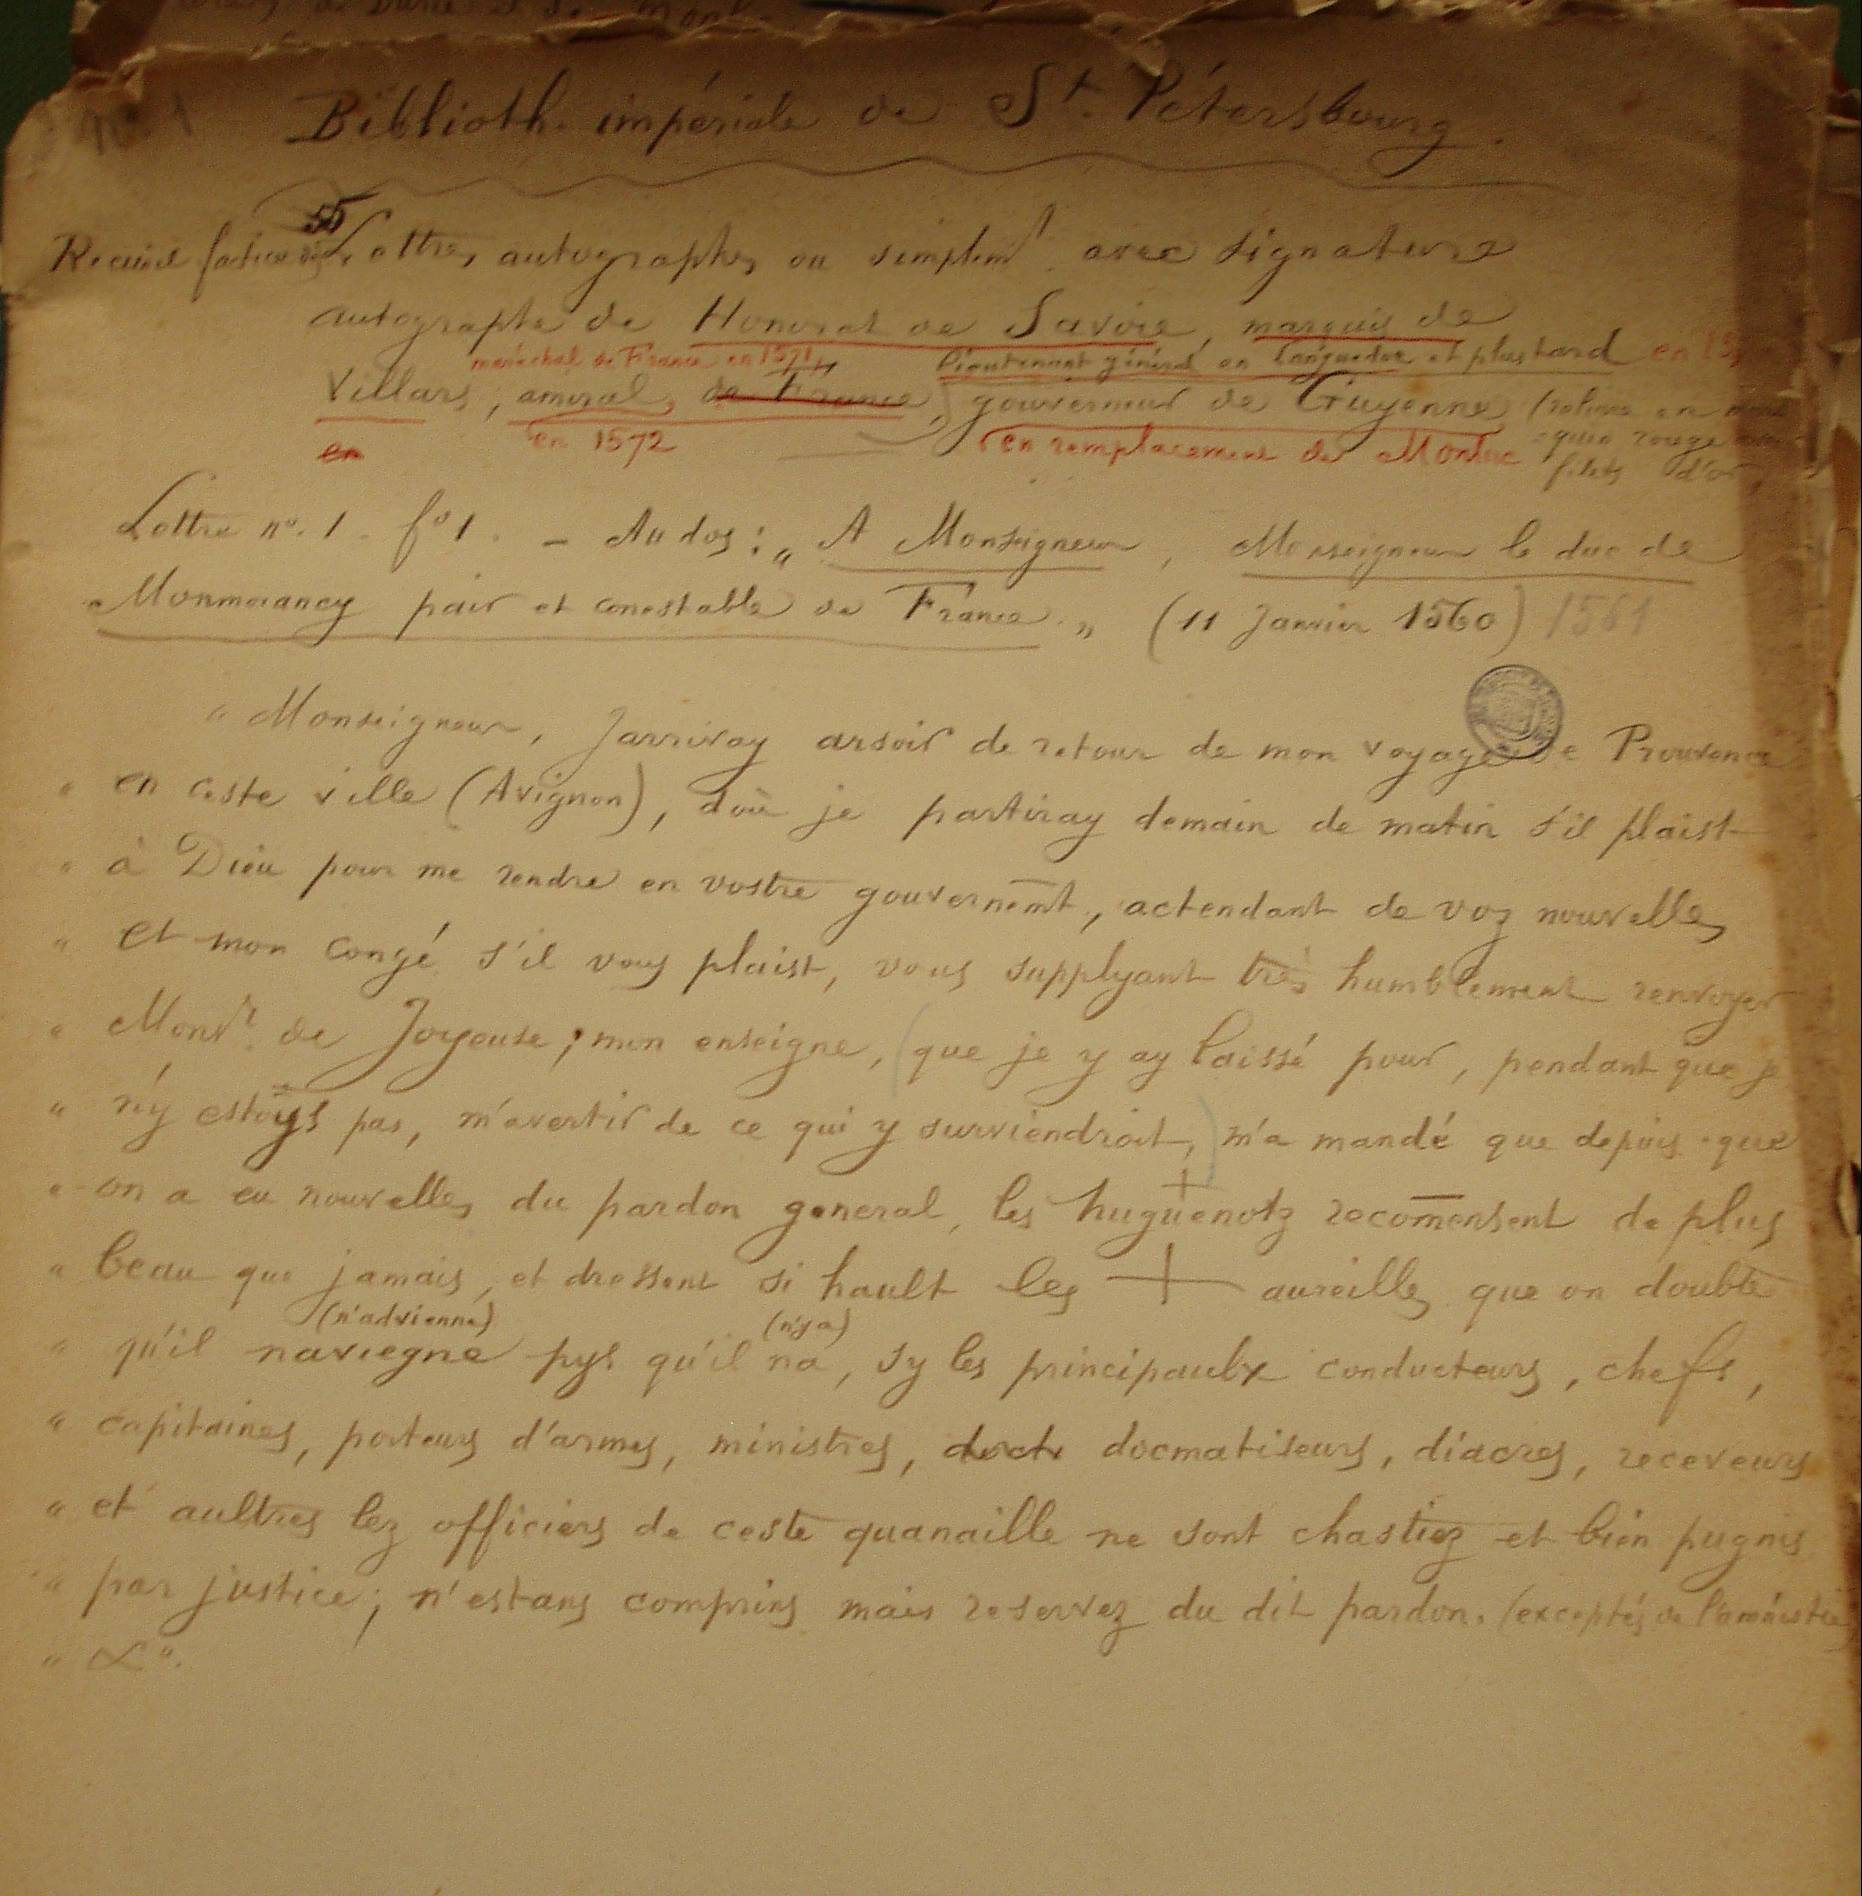 No 1
Biblioth. impériale de St. Pétersbourg.
55
Recueil factice de Lettres autographes ou simplemt. avec signature
autographe de Honorat de Savoie, marquis de
maréchal de France en 1571, lieutenant général en Languedoc et plus tard en 15
Villars, amiral, de France, gouverneur de Guyenne (reliure en maro
en en 1572 en remplacement de Monluc =quin rouge
filets d'or)
Lettre no. 1. fo 1. — Au dos : „ A Monseigneur, Monseigneur le duc de
„ Monmorancy pair et conestable de France. „ (11 Janvier 1560) 1561
" Monseigneur, Jarrivay arsoir de retour de mon voyage de Prouvence
" en ceste ville (Avignon), d'où je partiray demain de matin s'il plaist
" à Dieu pour me rendre en vostre gouvernemt, actendant de voz nouvelles
" et mon congé s'il vous plaist, vous supplyant très humblement renvoyer
" Monsr. de Joyeuse ; mon enseigne, (que je y ay laissé pour, pendant que je
" n'y estoys pas, m'avertir de ce qui y surviendroit,) m'a mandé que depuis que
" on a eu nouvelles du pardon general, les huguenotz recomensent de plus
" beau que jamais, et dressent si hault les + aureilles que on doubte
(n'advienne) (n'y a)
" qu'il naviegne pys qu'il na, sy les principaulx conducteurs, chefs,
" capitaines, porteurs d'armes, ministres, doct docmatiseurs, diacres, receveurs
" et aultres lez officiers de ceste quanaille ne sont chastiez et bien pugnis
" par justice ; n'estans comprins mais reservez du dit pardon. (exceptés de l'amnistie)
" &".